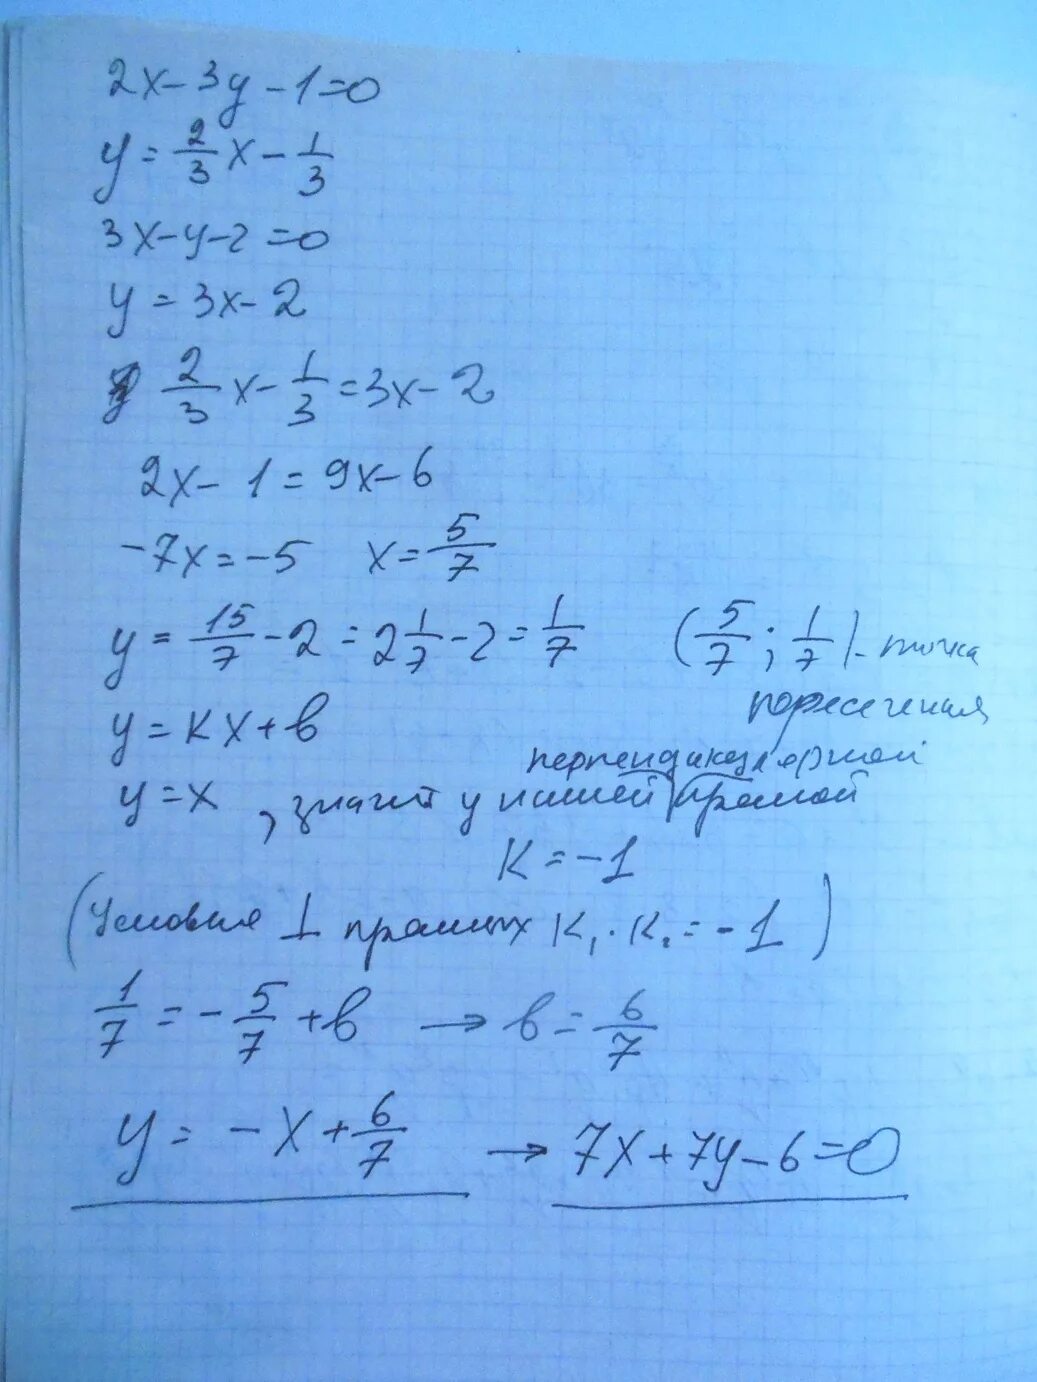 2x - 3y - 1 = 0
y = 2/3 x - 1/3
3x - y - 2 = 0
y = 3x - 2
2/3 x - 1/3 = 3x - 2
2x - 1 = 9x - 6
-7x = -5 x = 5/7
y = 15/7 - 2 = 2 1/7 - 2 = 1/7 (5/7 ; 1/7) - точка
пересечения
y = kx + b
перпендикулярной
y = x , значит у нашей прямой
K = -1
(Условие ⊥ прямых K₁ · K₂ = -1)
1/7 = -5/7 + b → b = 6/7
y = -x + 6/7 → 7x + 7y - 6 = 0